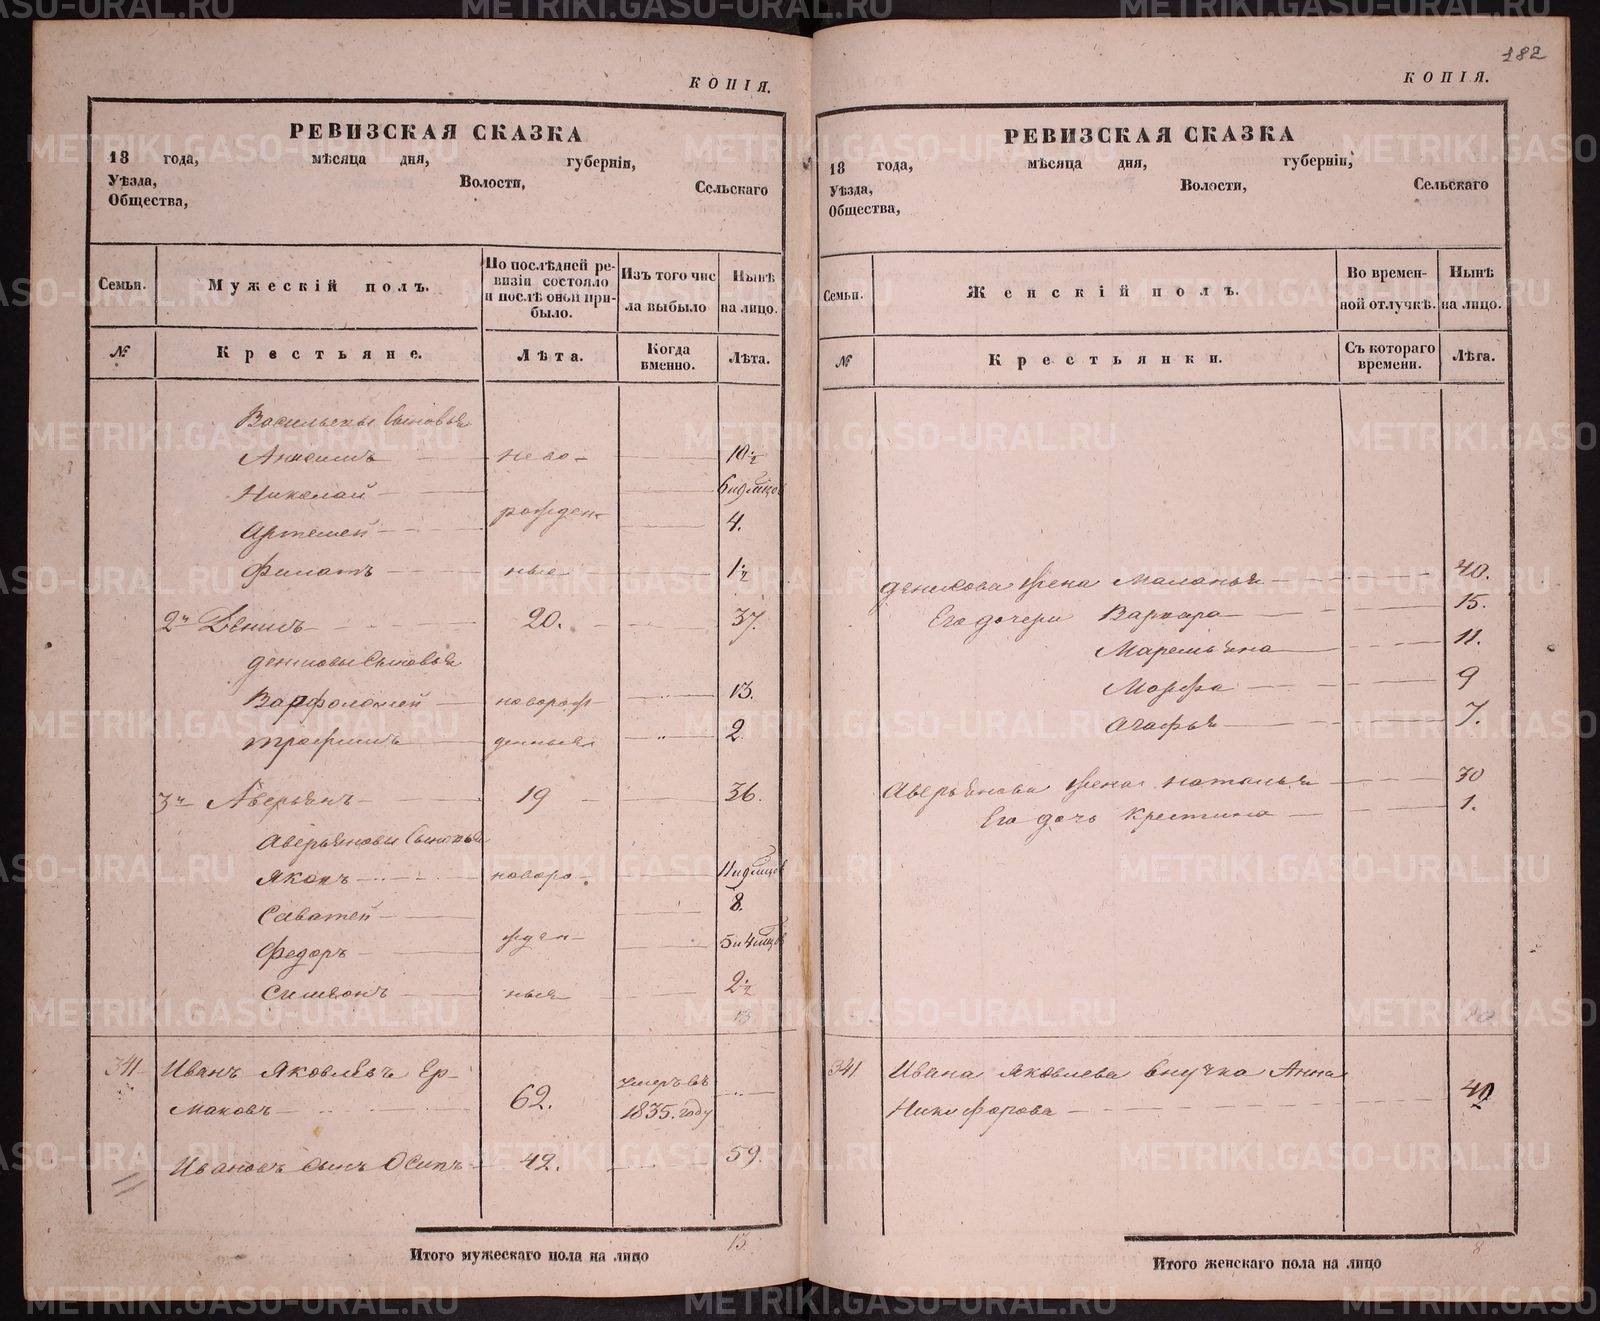 КОПІЯ.
РЕВИЗСКАЯ СКАЗКА
18 года, мѣсяца дня, губерніи,
Уѣзда, Волости, Сельскаго
Общества,
Семьи. Мужескій полъ. По послѣдней ревизіи состояло и послѣ оной прибыло. Изъ того числа выбыло Нынѣ на лицо.
№ Крестьяне. Лѣта. Когда именно. Лѣта.
Васильевы сыновья
Анисимъ ново- 10 1/2
Николай 6 и 9 мѣсяцов
Артемей рожден- 4.
Филатъ ные 1 1/2
2й Денисъ 20. 37.
Денисовы сыновья
Варфоломей новорож- 13.
Трофимъ денные 2
3й Аверьянъ 19 36.
Аверьяновы сыновья
Яковъ новоро- 11 и 9 мѣсяцов
Саватей 8.
Федоръ жден- 5 и 4 мѣсяцов
Симеонъ ные 2 1/2
13
341 Иванъ Яковлевъ Ер- умеръ въ
маковъ 62. 1835. году
Ивановъ сынъ Осипъ 42. 59.
Итого мужескаго пола на лицо 13
182
КОПІЯ.
РЕВИЗСКАЯ СКАЗКА
18 года, мѣсяца дня, губерніи,
Уѣзда, Волости, Сельскаго
Общества,
Семьи. Женскій полъ. Во временной отлучкѣ. Нынѣ на лицо.
№ Крестьянки. Съ котораго времени. Лѣта.
Денисова жена Маланья 40.
Его дочери Варвара 15.
Маремьяна 11.
Марфа 9
Агафья 7.
Аверьянова жена Наталья 30
Его дочь Крестина 1.
341 Ивана Яковлева внучка Анна
Никифорова
Итого женскаго пола на лицо 8
METRIKI.GASO-URAL.RU